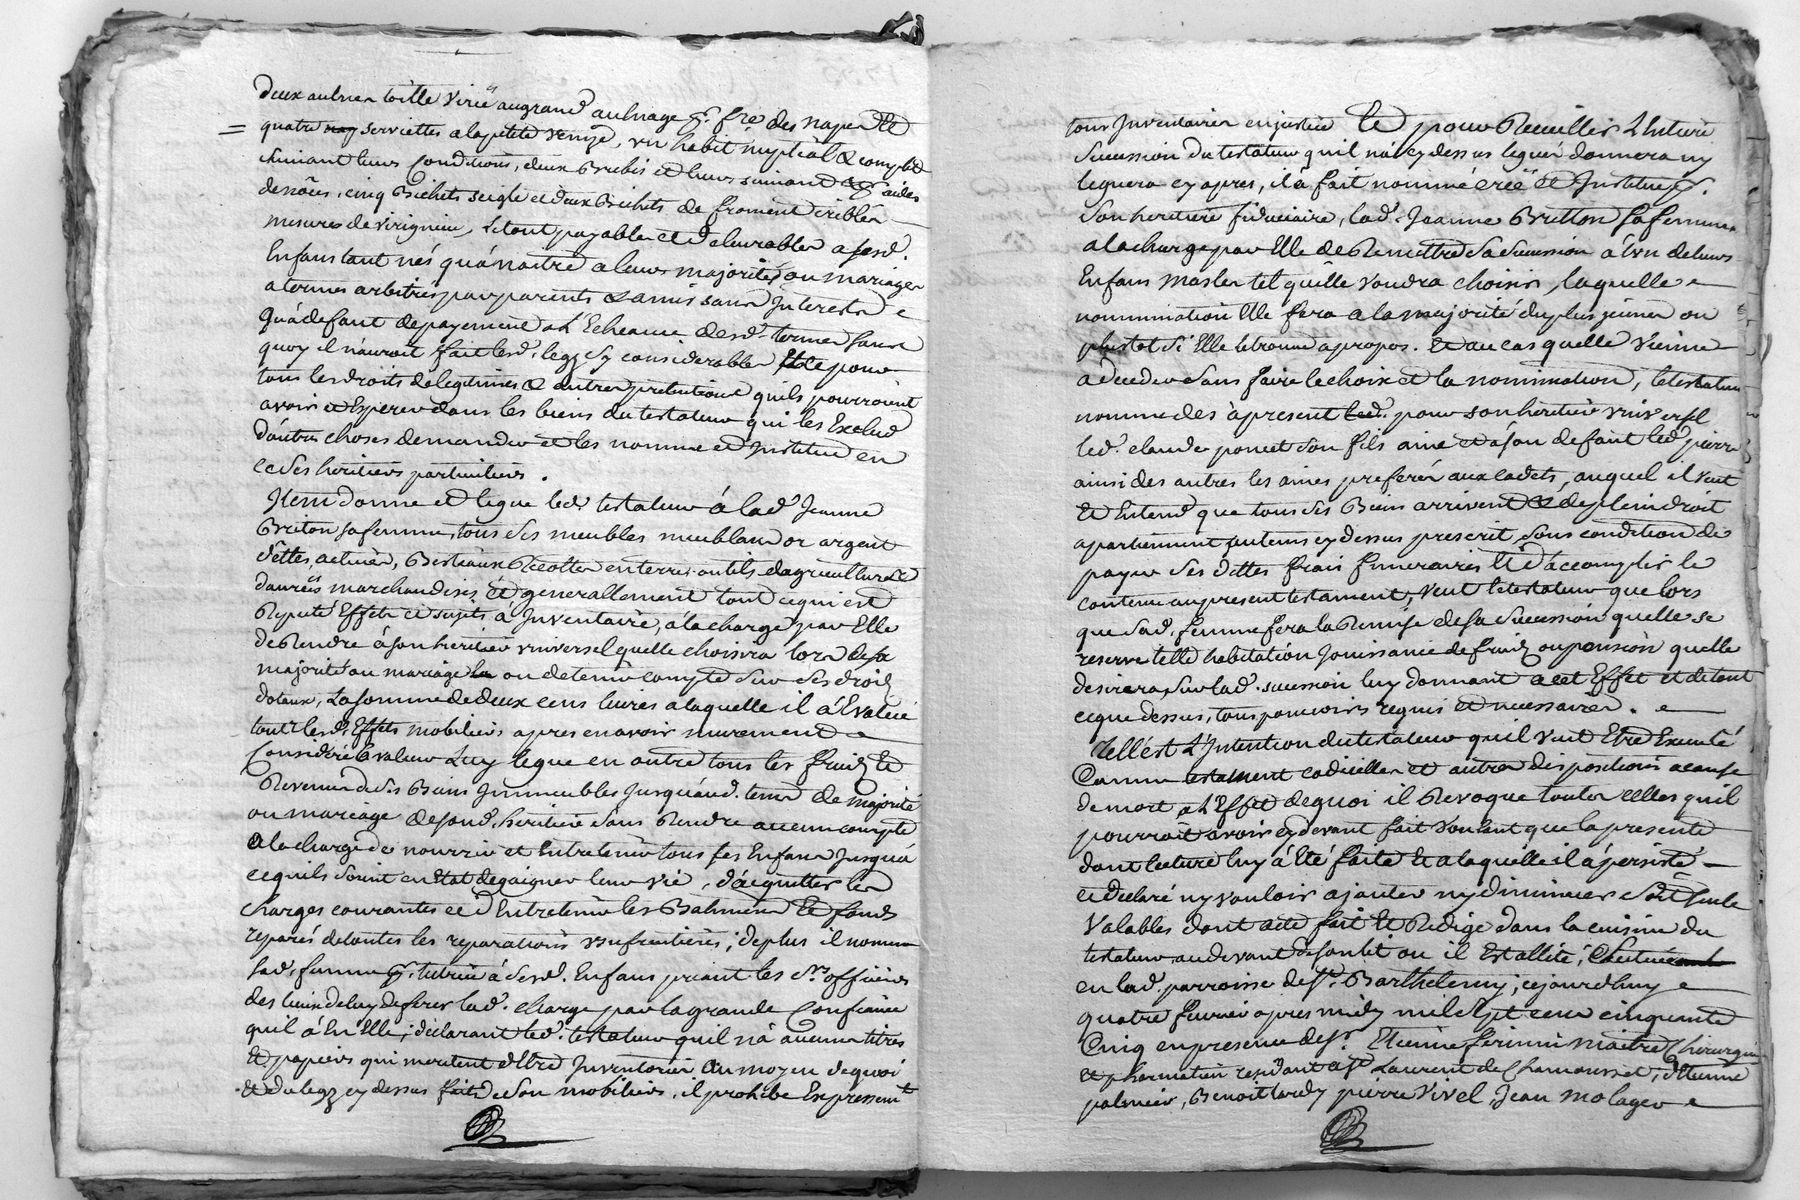 deux aulnes toille Viriés augrand aulnage &. fre des napes Et
quatre serviettes alapetite Venize, un habit nuptial & complet
suivant leurs Conditions, deux Brebis et leurs suivant aides
de nôces, cinq Bichets seigle et deux Bichets de froment cribléz
mesures de Virignieu, le tout payables et delivrables a sesd.
Enfans tant nés quá naitre a leurs majorités ou mariages
atermes arbitrés par parents & amis sans Interests
Quá defaut depayement a L'Echeance desd. termes sans
quoy il n'auroit fait lesd. legz sy considerables Et ce pour
tous les droits delegitimes & autres pretentions quils pourroient
avoir et Esperer dans les biens du testateur qui les Exclud
dáutres choses demander et les nomme et Institue en
ce ses heritiers particuliers.
Item donne et legue led. testateur á lad. Jeanne
Briton sa femme, tous ses meubles meublans or argent
déttes, actives, Bestiaux Recoltes en terres outils dagriculture
danrées marchandises et generallement tout ce qui est
Reputé Effets et sujets à Inventaire, à la charge par Elle
de Rendre á son heritier universel quelle choisira lors de sa
majorité ou mariage ou de tenir compte sur ses droits
dotaux, La somme de deux cens livres a laquelle il á Evalué
tout lesd. Effets mobiliers apres en avoir murement
Consideré la valeur Luy legue en outre tous les fruits Et
Revenus de ses Biens Immeubles Jusquáud. tems de majorité
ou mariage desond. heritier sans Rendre aucun compte
a la charge de nourrir et Entretenir tous ses Enfans Jusquá
ce quils soient en Etat degaigner leur vie, dácquitter les
charges courantes et d'Entretenir les Batimens Et fonds
reparés de toutes les reparations usufruitieres; de plus il nomme
sad. femme tutrice á sesd. Enfans priant les Srs. officiers
des lieux de luy deferer lad. charge par la grande Confiance
quil á En Elle; déclarant led. testateur quil ná aucuns titres
Et papiers qui meritent dEtre Inventoriés Au moyen dequoi
et du legz cy dessus fait de son mobilier, il prohibe Expressemt
tous Inventaires en justice Et pour Recueillir L'huture
Succession du testateur quil ná cy dessus legué donnera ny
leguera cy apres, il á fait nommé créé et Institué
son heritiere fiduciaire, lad. Jeanne Britton sa femme
a la charge par Elle de Remettre sa succession á lun de leurs
Enfans masles tel quélle voudra choisir, laquelle
nommination Elle fera a la majorité du plus jeune ou
plustot si Elle le trouve apropos. Et au cas quelle vienne
a deceder sans faire le choix et la nomination, le testateur
nomme dés àpresent pour son heritier universel
led. claude poncet son fils ainé et á son defaut led. pierre
ainsi des autres les ainés preferés aux cadets, auquel il veut
Et Entend que tous ses Biens arrivent & de plein droit
apartiennent au tems cy dessus prescrit, sous condition de
payer ses dettes frais funeraires Et d'accomplir le
contenu au present testament; Veut le testateur que lors
que sad. femme fera la Remise de sa Succession quelle se
reserve telle habitation Jouissance de fruits ou pension quelle
desirera sur lad. sucession luy donnant a cet Effet et de tout
ce que dessus, tous pouvoirs requis et necessaires.
Tellést L'Intention du testateur quil veut Etre Executé
Comme testament codicilles et autres dispositions a cause
de mort, a L'Effet dequoi il Revoque toutes celles quil
pourroit avoir cy devant fait voulant que la presente
dont lecture luy á été faite Et a laquelle il á persisté
et declaré ny vouloir ajouter ny diminuer soit seule
Valables dont acte fait Et Redigé dans la cuisine du
testateur au devant de son lit ou il Est allité,
en lad. parroisse de St. Barthelemy; ce jourdhuy
quatre fevrier apres midy mil sept cens cinquante
Cinq en presence de Sr. Etienne maitre Chirurgien
et pharmatien residant a St Laurent de Chamousset, Etienne
palmier, Benoit tardy pierre Vivel, Jean molager